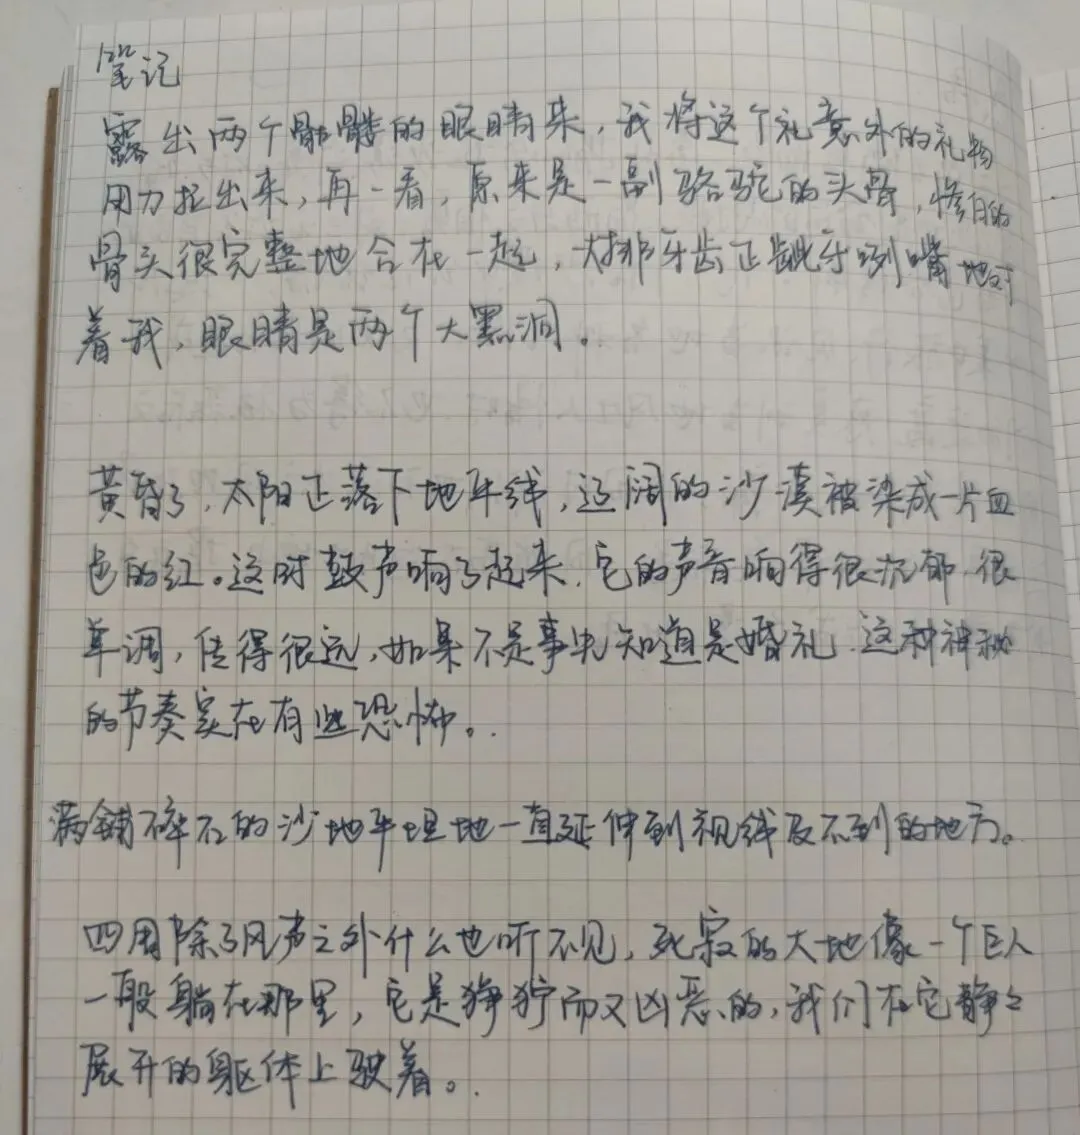 笔记
露出两个骷髅的眼睛来，我将这个礼意外的礼物
用力拉出来，再一看，原来是一副骆驼的头骨，惨白的
骨头很完整地合在一起，大排牙齿正龇牙咧嘴地对
着我，眼睛是两个大黑洞。
黄昏了，太阳正落下地平线，辽阔的沙漠被染成一片血
色的红。这时鼓声响了起来，它的声音响得很沉郁，很
单调，传得很远，如果不是事先知道是婚礼，这种神秘
的节奏实在有些恐怖。
满铺碎石的沙地平坦地一直延伸到视线及不到的地方。
四周除了风声之外什么也听不见，死寂的大地像一个巨人
一般躺在那里，它是狰狞而又凶恶的，我们在它静々
展开的躯体上驶着。